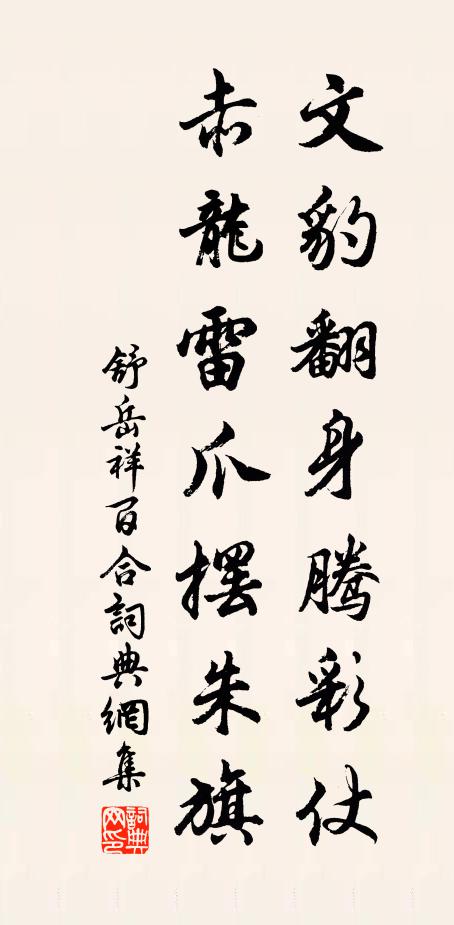 文豹翻身腾彩仗
赤龍雷爪摆朱旗
舒岳祥百合詞典網集
詞典网印